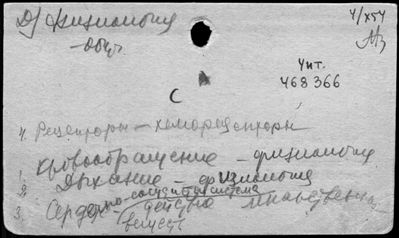 Д) Физиология
- общ.
4/XI 54
Чит.
468 366
С
4. Рецепторы - хеморецепторы
1. Кровообращение - физиология
2. Дыхание - физиология
3. Сердечно-сосудистая система - действие лекарственных
веществ